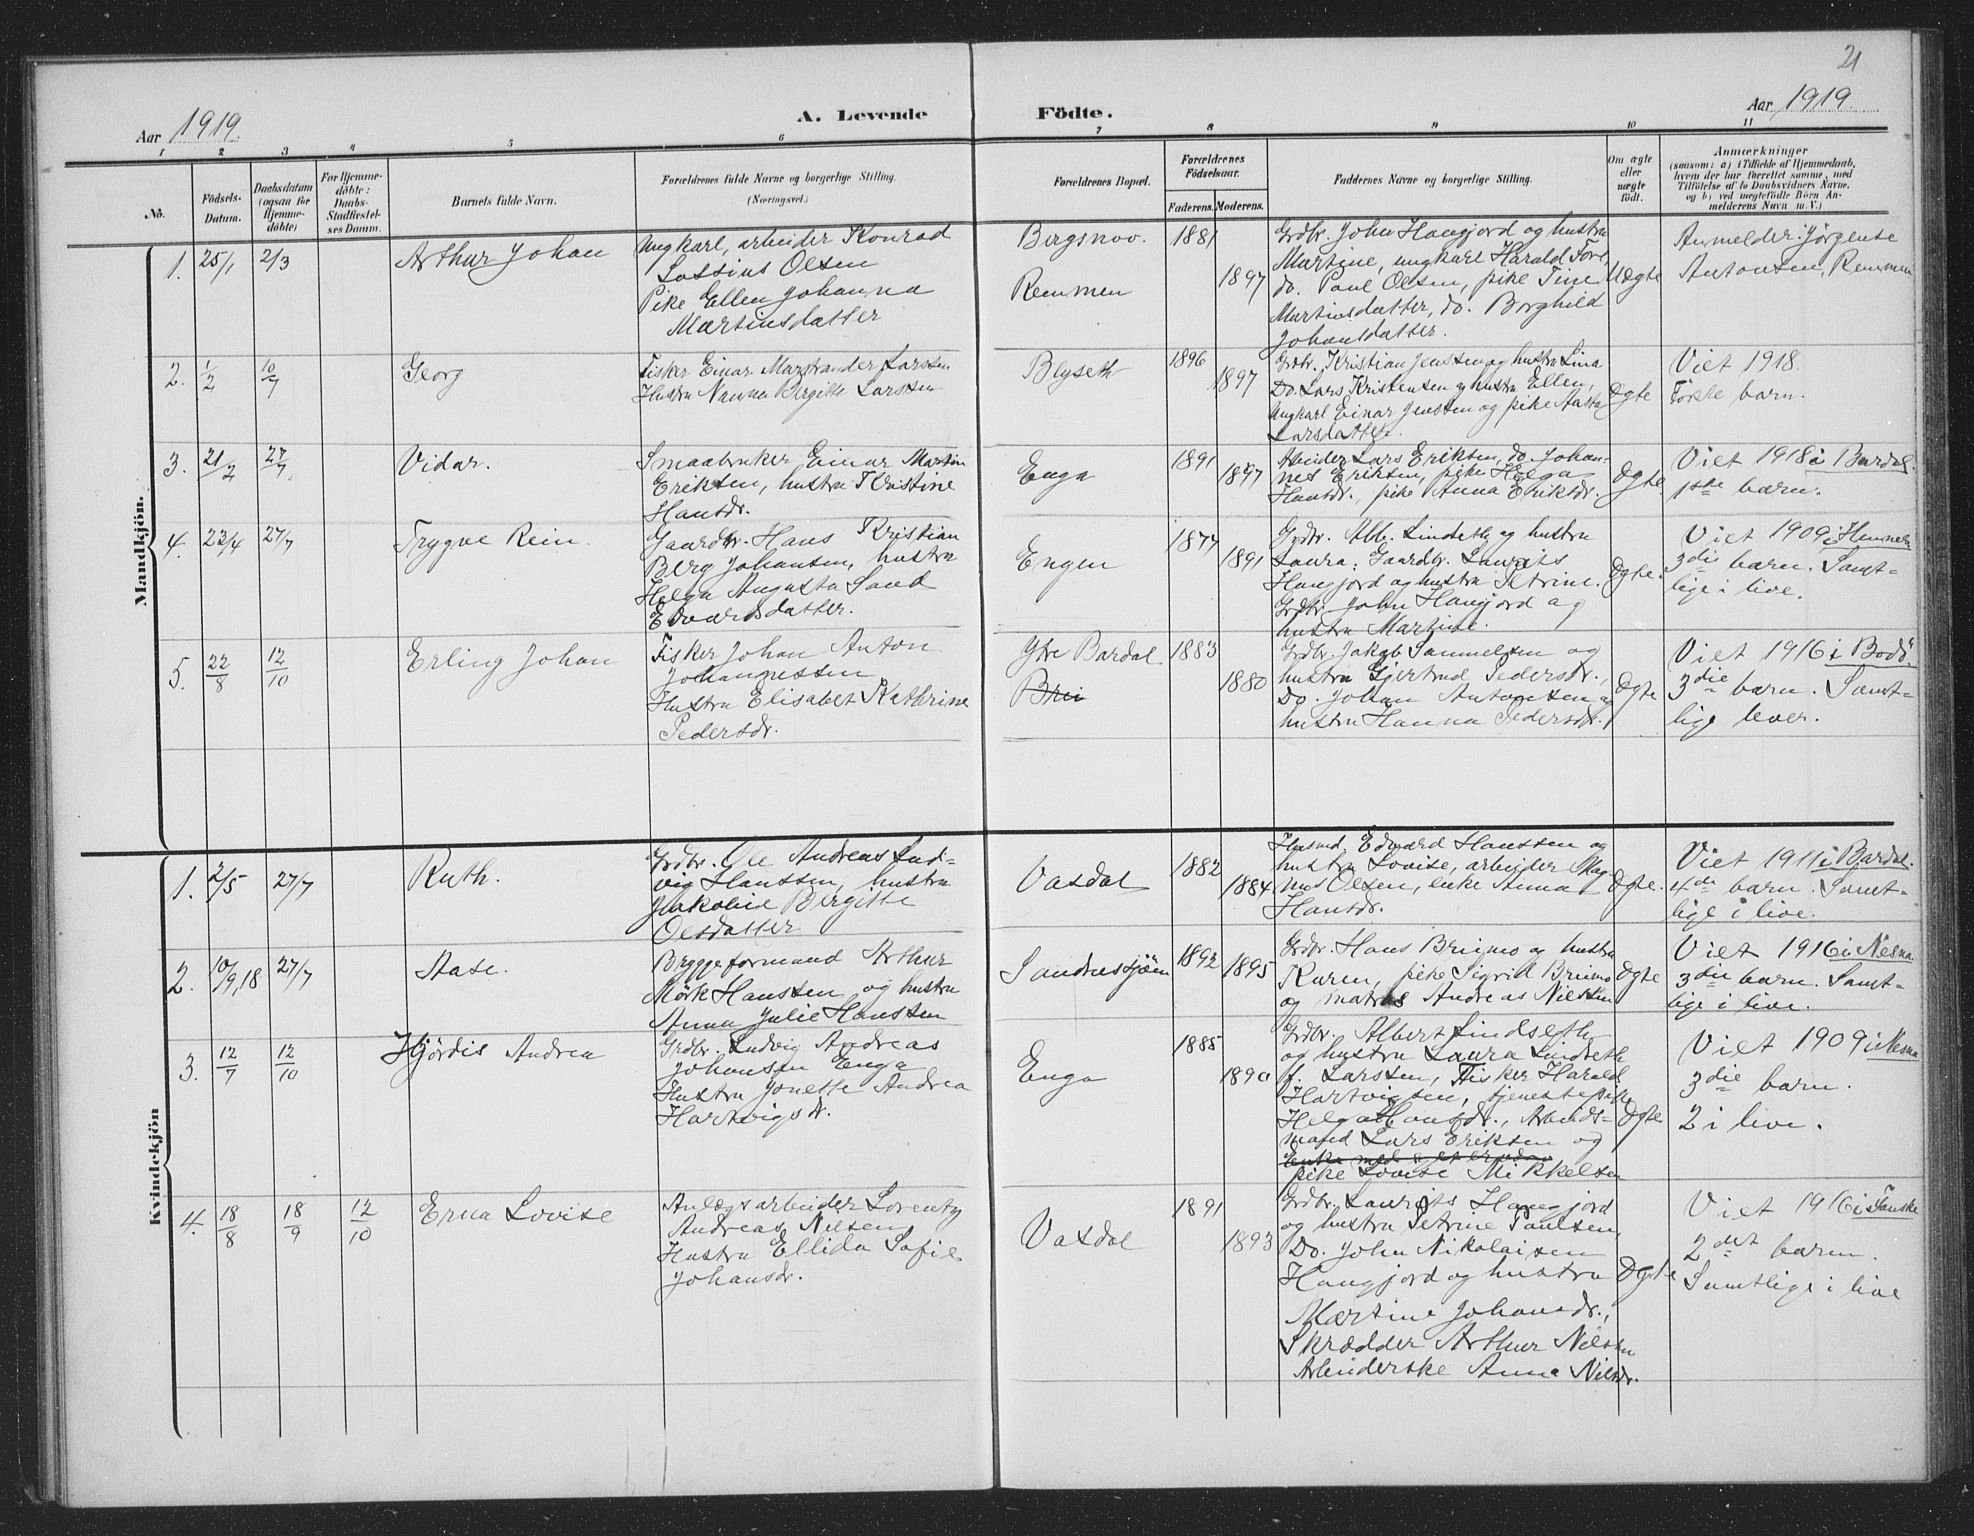 21
Aar 1919.
A. Levende
Födte.
Aar 1919.
1 2 3 4 5 6 7 8 9 10 11
No.
Födsels-
Datum.
Daabsdatum
(ogsaa for
Hjemme-
döbte)
For Hjemme-
döbte:
Daabs-
Stadfæstel-
ses Datum.
Barnets fulde Navn.
Forældrenes fulde Navne og borgerlige Stilling.
(Næringsvei.)
Forældrenes Bopæl.
Forældrenes
Födselsaar.
Faderens. Moderens.
Faddernes Navne og borgerlige Stilling.
Om ægte
eller
uægte
födt.
Anmærkninger
(saasom: a) i Tilfælde af Hjemmedaab,
hvem der har forrettet samme, med
Tilföielse af to Daabsvidners Navne.
og b) ved uægtefödte Börn An-
melderens Navn m. V.)
Mandkjön.
1. 25/1 2/3 Arthur Johan
Ungkarl, arbeider Konrad
Lossius Olsen
Pike Ellen Johanna
Martinsdatter
Bergsnov.
Remmen
1881
1897
Grdbr. John Haugjord og hustru
Martine, ungkarl Harald Fore
do. Paul Olsen, pike Tine
Martinsdatter, do. Borghild
Johansdatter.
Uegte
Anmelder: Jörgense
Antonsen, Remmen
2. 1/2 10/7 Georg
Fisker Einar Marstrander Larssen
Hustru Nanna Bergitte Larssen
Blyseth
1896
1897
Grdbr. Kristian Jenssen og hustru Lina
Do. Lars Kristensen og hustru Ellen,
Ungkarl Einar Jenssen og pike Aasta
Larsdatter.
Ogte
Viet 1918.
Förste barn.
3. 21/2 27/7. Vidar.
Smaabruker Einar Martin
Eriksen, hustru Kristine
Hansdr.
Enga
1891
1897
Arbeider Lars Eriksen, do. Johan-
nes Eriksen, pike Helga
Hansdr., pike Anna Eriksdr.
Ogte
Viet 1918 i Bardal.
1ste barn.
4. 23/4 27/7 Trygve Rein.
Gaardbr. Hans Kristian
Berg Johansen, hustru
Helga Augusta Sand
Edvardsdatter.
Engen
1877
1891
Grdbr. Alb. Lindseth og hustru
Laura; Gaardbr. Laurits
Haugjord og hustru Petrine.
Grdbr. John Haugjord og
hustru Martine.
Ogte.
Viet 1909 i Hemnes
3die barn. Samt-
lige i live.
5. 22/8 12/10 Erling Johan
Fisker Johan Anton
Johannessen
Hustru Elisabet Kathrine
Pedersdr.
Ytre Bardal
1883
1880
Grdbr. Jakob Sammelsen og
hustru Gjertrud Pedersdr.,
Do. Johan Antonsen og
hustru Hanna Pedersdr.
Ogte
Viet 1916 i Bodö.
3die barn. Samt-
lige lever.
Kvindekjön
1. 2/5 27/7 Ruth.
Grdbr. Ole Andreas Lud-
vig Hanssen, hustru
Jakobine Bergitte
Olsdatter
Vasdal
1882
1884
Husmd. Edvard Hanssen og
hustru Lovise, arbeider Mag-
nus Olsen, enke Anna
Hansdr.
Ogte.
Viet 1911 i Bardal.
4de barn. Samt-
lige i live.
2. 10/9,18 27/7 Aase.
Bryggeformand Arthur
Mörk Hanssen og hustru
Anna Julie Hanssen
Sandnessjöen
1892
1895
Grdbr. Hans Bruimo og hustru
Karen, pike Sigrid Bruimo
og matros Andreas Nilssen
Ogte
Viet 1916 i Nesna
3die barn. Samt-
lige i live.
3. 12/7 12/10 Hjördis Andrea
Grdbr. Ludvig Andreas
Johansen Enga
Hustru Jonette Andrea
Hartvigsdr.
Enga
1885
1890
Grdbr. Albert Lindseth
og hustru Laura Lindseth
f. Larssen, Fisker Harald
Hartvigsen, tjenestepike
Helga Hansdr., Arbeids-
mand Lars Eriksen og
pike Lovise Mikkelsen
Ogte
Viet 1909 i Nesna
3die barn.
2 i live.
4. 18/8 18/9 12/10 Erna Lovise
Anlægsarbeider Lorentz
Andreas Nilsen
Hustru Ellida Sofie
Johansdr.
Vasdal
1891
1893
Grdbr. Laurits Haugjord
og hustru Petrine Paulsen,
Do. John Nikolaisen
Haugjord og hustru
Martine Johansdr.,
Skrædder Arthur Nilsen
Arbeiderske Anna Nilsdr.
Ogte
Viet 1916 i Fauske
2det barn.
Samtlige i live